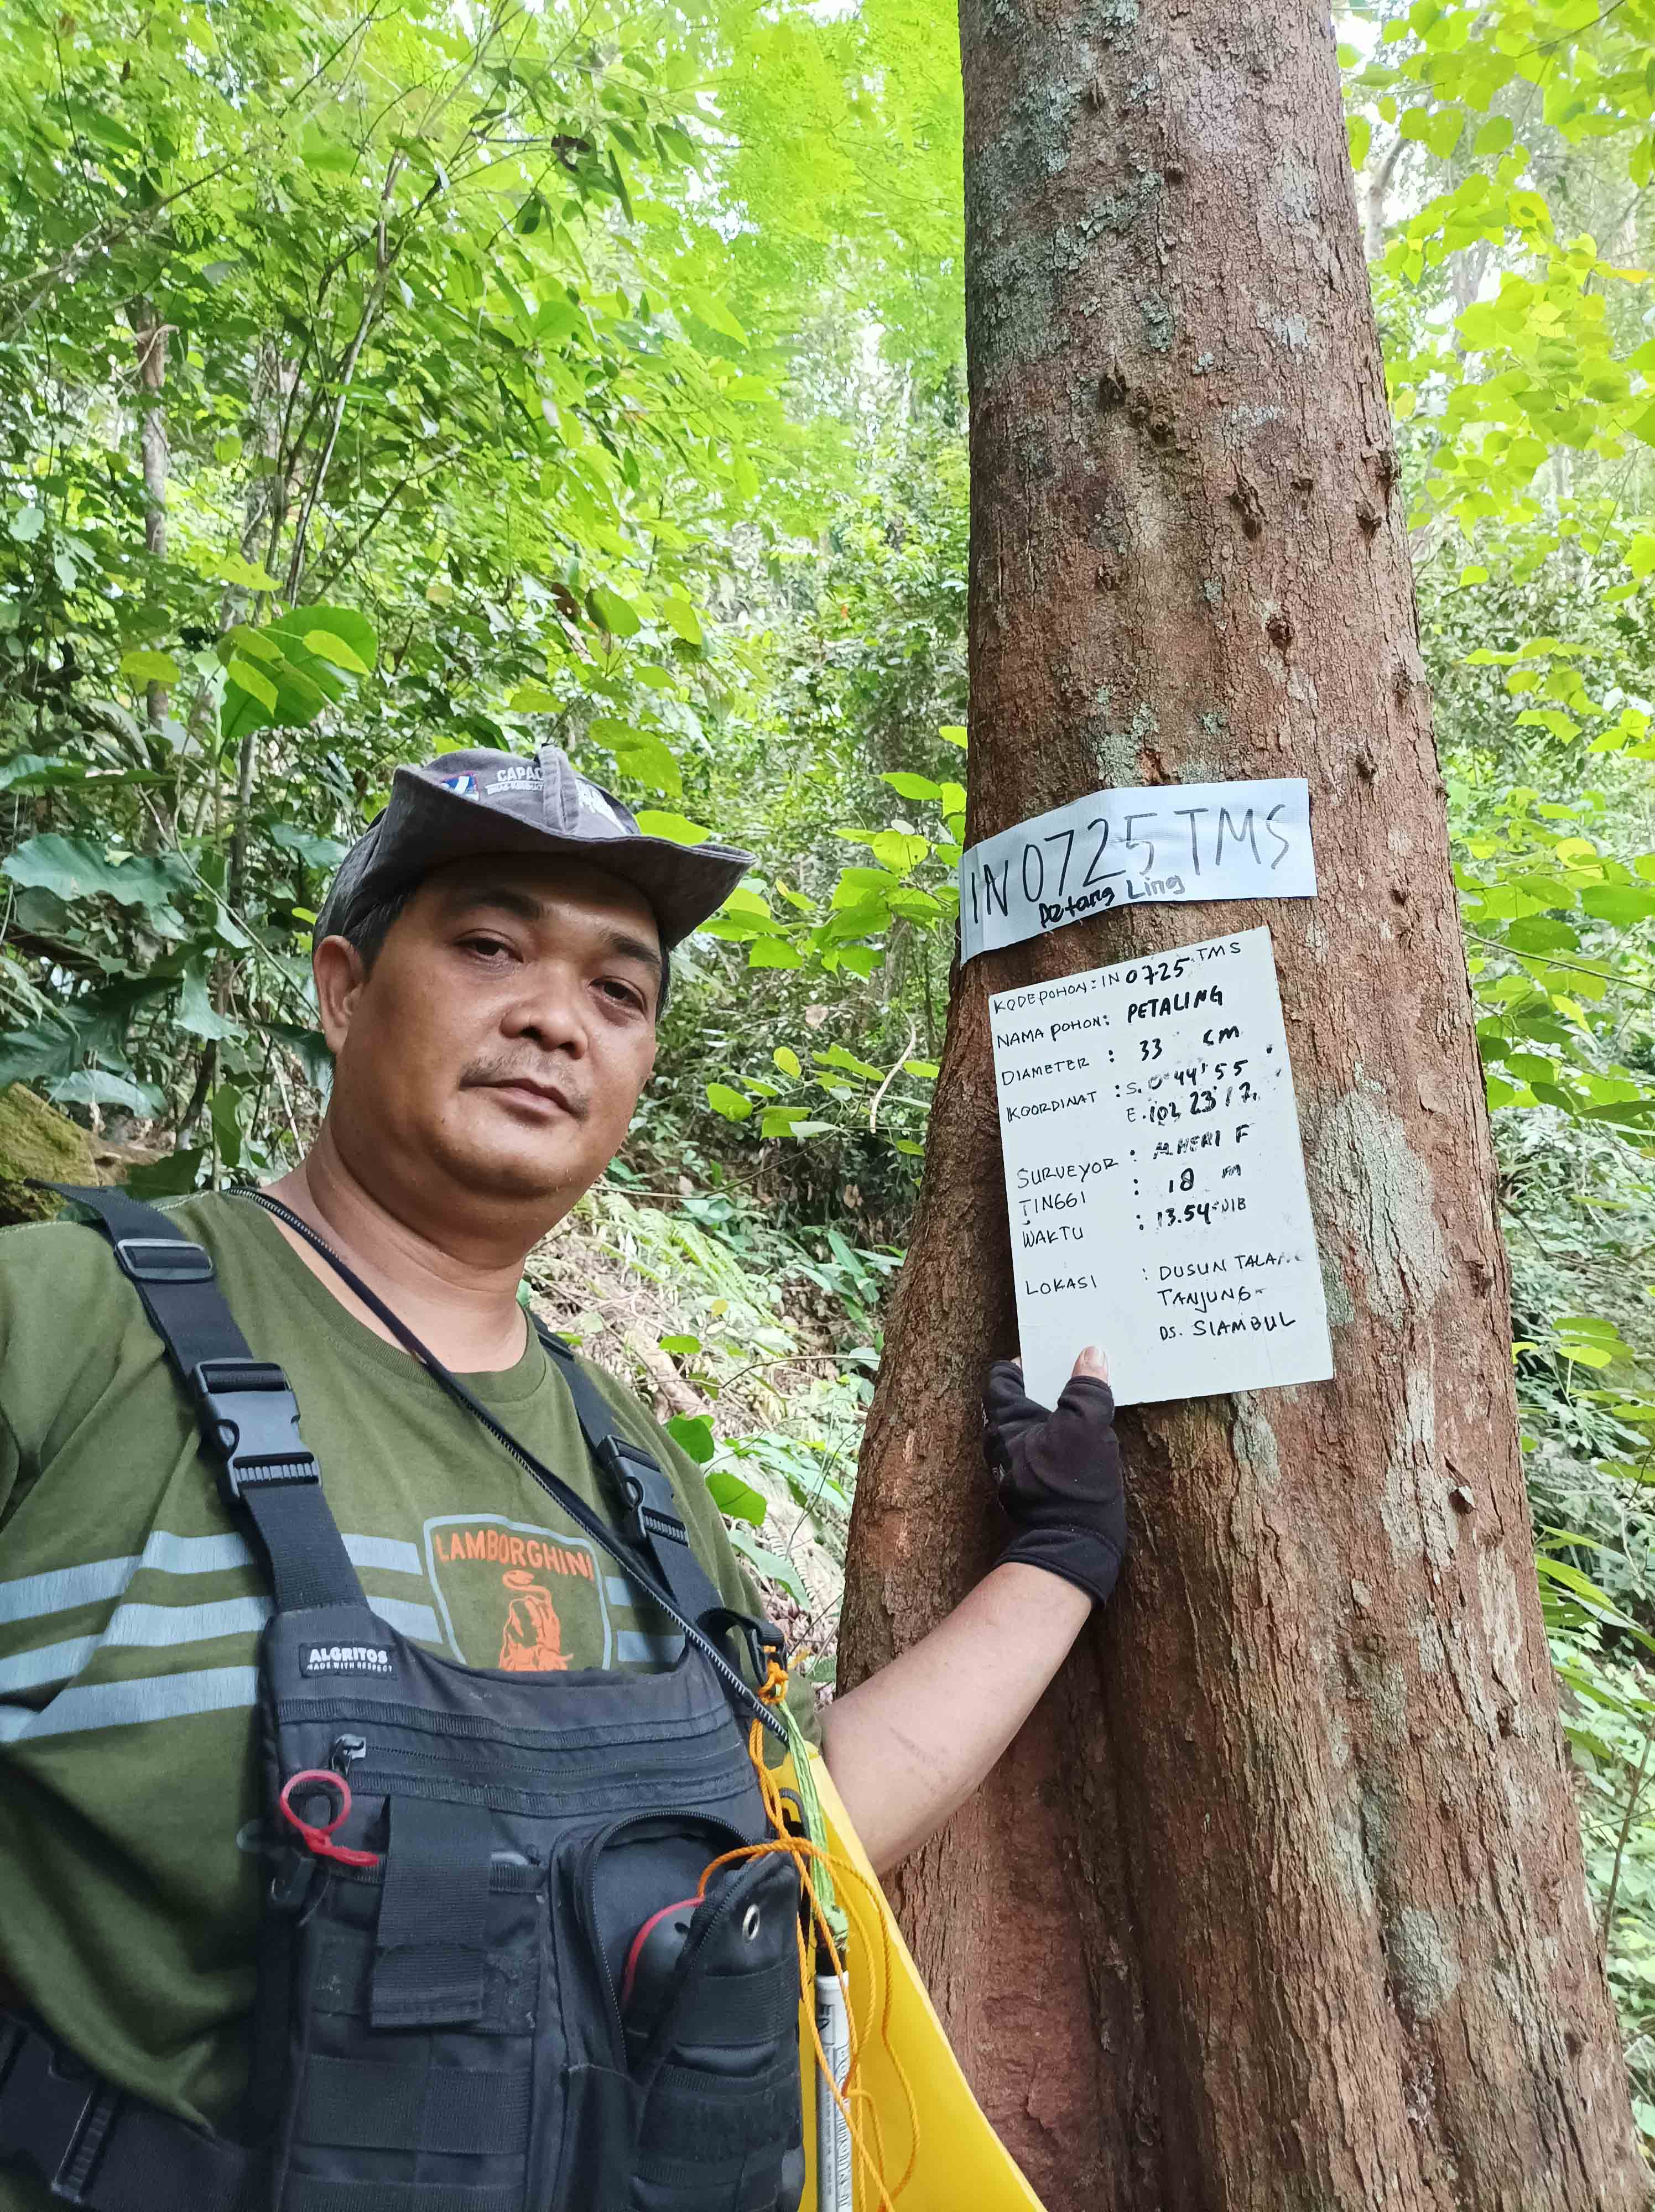 IN 0725 TMS
Petang Ling
KODE POHON : IN 0725 TMS
NAMA POHON : PETALING
DIAMETER : 33 CM
KOORDINAT : S. 0° 44' 55
E. 102 23' 17.
SURVEYOR : M. HERI F
TINGGI : 18 M
WAKTU : 13.54 WIB
LOKASI : DUSUN TALANG
TANJUNG
DS. SIAMBUL
LAMBORGHINI
ALGRITOS
MADE WITH RESPECT